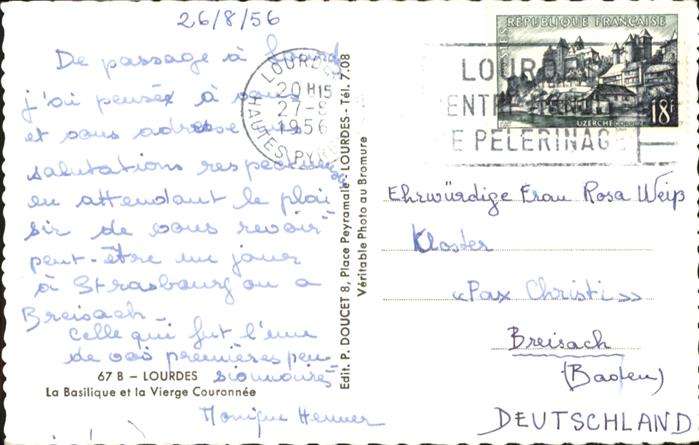 26/8/56
De passage à Lourdes
j'ai pensé à vous
et vous adresse mes
salutations respectueuses
en attendant le plai
sir de vous revoir
peut-être un jour
à Strasbourg ou a
Breisach.
Celle qui fut l'une
de vos premières pen
sionnaires
Monique Henner
67 B – LOURDES
La Basilique et la Vierge Couronnée
Edit. P. DOUCET 8, Place Peyramale - LOURDES - Tél. 7.08
Véritable Photo au Bromure
LOURDES
20 H15
27-8
1956
HAUTES-PYR
LOURDES
PELERINAGE
POSTES
REPUBLIQUE FRANÇAISE
18F
UZERCHE
Ehrwürdige Frau Rosa Weiß
Kloster
«Pax Christi»
Breisach
(Baden)
DEUTSCHLAND